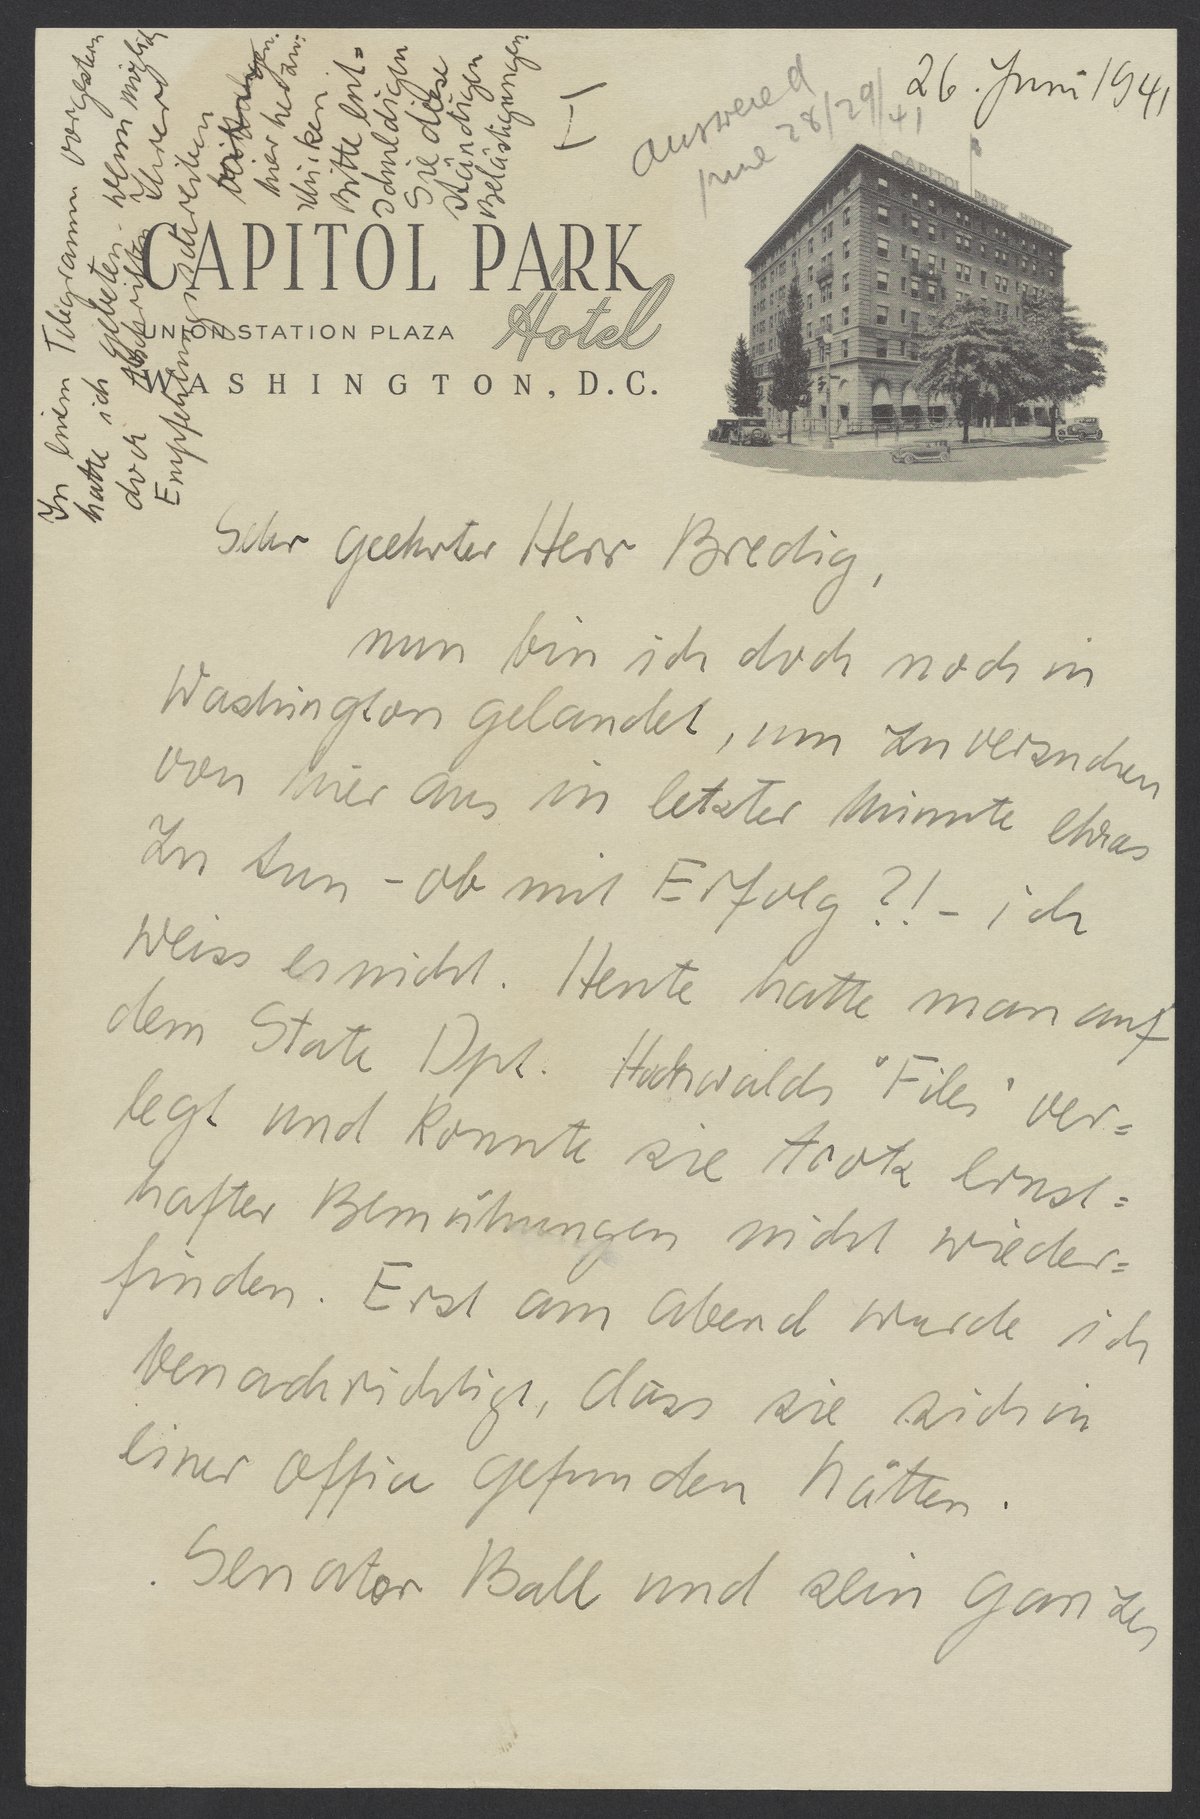 26. Juni 1941
answered
june 28/29/41
In einem Telegramm vorgestern
hatte ich gebeten - wenn möglich
doch Abschriften Ihrer
Empfehlungsschreiben
hierher zu
schicken.
Bitte ent=
schuldigen
Sie diese
ständigen
Belästigungen.
CAPITOL PARK HOTEL
CAPITOL PARK
Hotel
UNION STATION PLAZA
WASHINGTON, D.C.
Sehr geehrter Herr Bredig,
nun bin ich doch noch in
Washington gelandet, um zu versuchen
von hier aus in letzter Minute etwas
zu tun - ob mit Erfolg ?! - ich
weiss es nicht. Heute hatte man auf
dem State Dpt. Hochwalds "Files" ver=
legt und konnte sie trotz ernst=
hafter Bemühungen nicht wieder=
finden. Erst am Abend wurde ich
benachrichtigt, dass sie sich in
einer Office gefunden hätten.
Senator Ball und sein ganzes